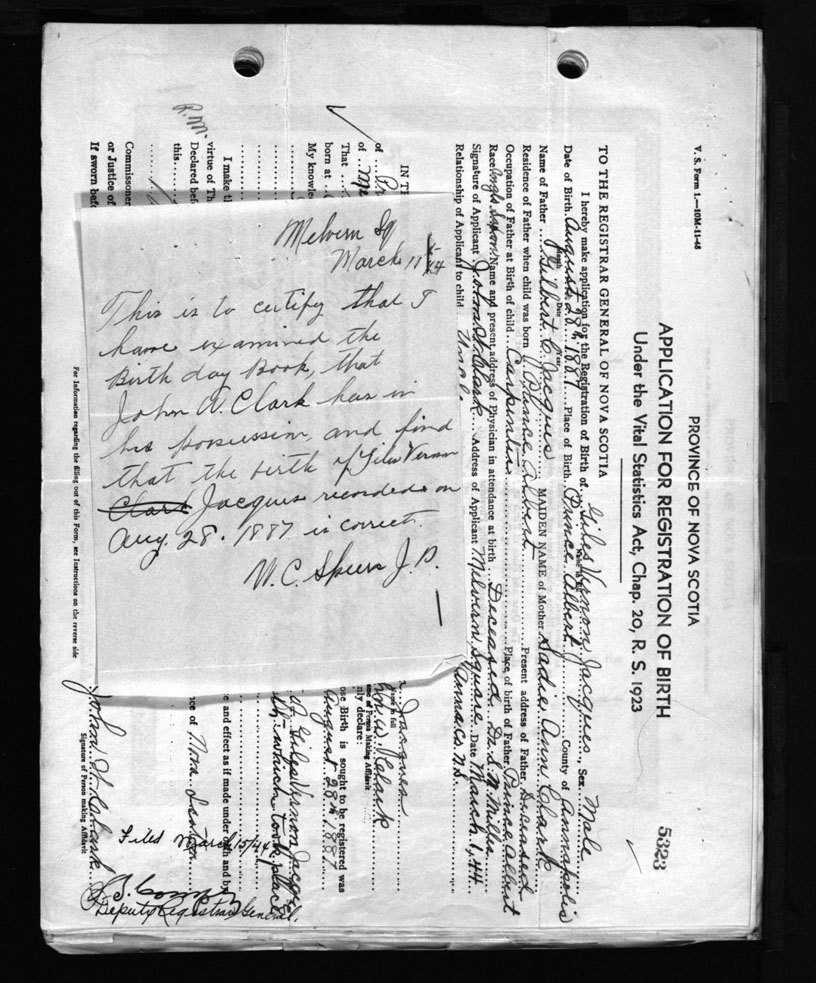 V. S. Form 1.—10M-11-43
PROVINCE OF NOVA SCOTIA
5323
APPLICATION FOR REGISTRATION OF BIRTH
Under the Vital Statistics Act, Chap. 20, R. S. 1923
TO THE REGISTRAR GENERAL OF NOVA SCOTIA
I hereby make application for the Registration of Birth of Giles Vernon Jacques, Sex Male
Date of Birth August 28th, 1887 Place of Birth Prince Albert County of Annapolis
Name of Father Gilbert C. Jacques MAIDEN NAME of Mother Sadie Ann Clark
Residence of Father when child was born Prince Albert Present address of Father Deceased
Occupation of Father at Birth of child Carpenter Place of birth of Father Prince Albert
Race Anglo Saxon Name and present address of Physician in attendance at birth Deceased Dr. S. N. Miller
Signature of Applicant John W. Clark Address of Applicant Melvern Square Date March 1, 44
Relationship of Applicant to child Uncle Annac. N.S.
Melvern Sq
March 11 44
This is to certify that I
have examined the
Birth day Book, that
John W. Clark has in
his possession, and find
that the birth of Giles Vernon
Clark Jacques recorded on
Aug. 28. 1887 is correct.
W. C. Spurr J. P.
IN T
of
of
That
born at
My knowle
I make t
virtue of Th
Declared bef
this
Commissioner
or Justice of
If sworn befo
R.M.
Jacques
W. Clark
Name of Person Making Affidavit
nly declare:
ose Birth is sought to be registered was
August 28th 1887
Giles Vernon Jacques
which took place
e and effect as if made under oath and by
nce of Nova Scotia
Filed March 15/44
John W. Clark
Signature of Person making Affidavit
Deputy Registrar General.
For Information regarding the filling out of this Form, see Instructions on the reverse side